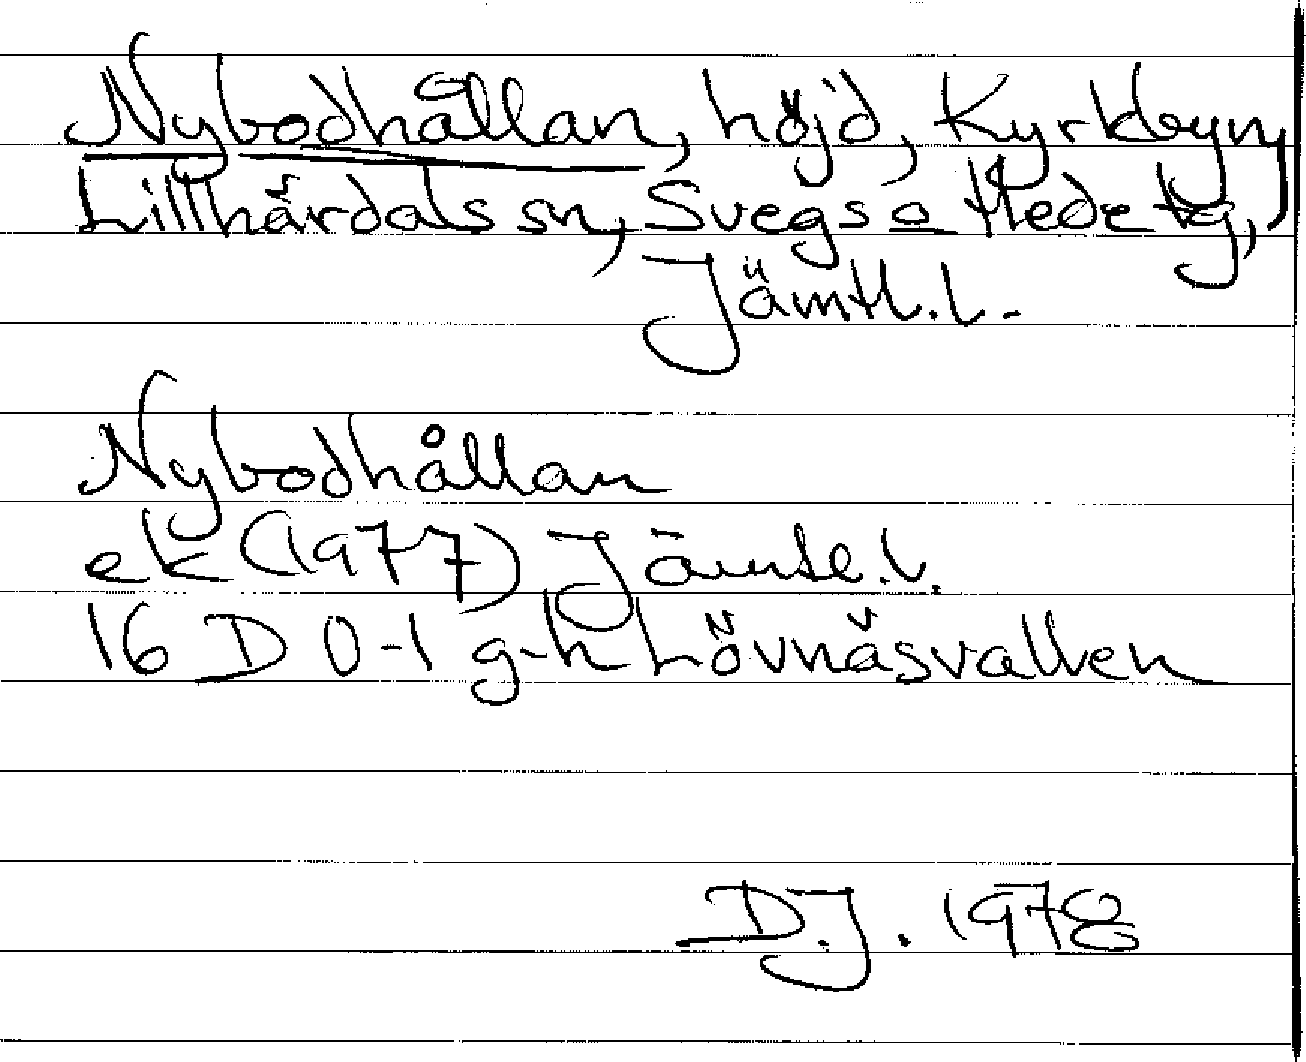 Nybodhållan, höjd, Kyrkbyn,
Lillhärdals sn, Svegs o Hede tg,
Jämtl. l.
Nybodhållan
ek (1977) Jämtl. l.
16 D 0-1 g-h Lövnäsvallen
D.J. 1978